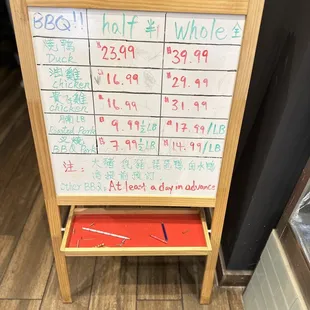 BBQ!! half 半 Whole 全
燒鴨 Duck $23.99 $39.99
油雞 chicken $16.99 $29.99
chicken $16.99 $31.99
Roasted Pork $9.99 ½ LB $17.99/LB
叉燒 BBQ Pork $7.99 ½ LB $14.99/LB
注:
other BBQ, At least a day in advance